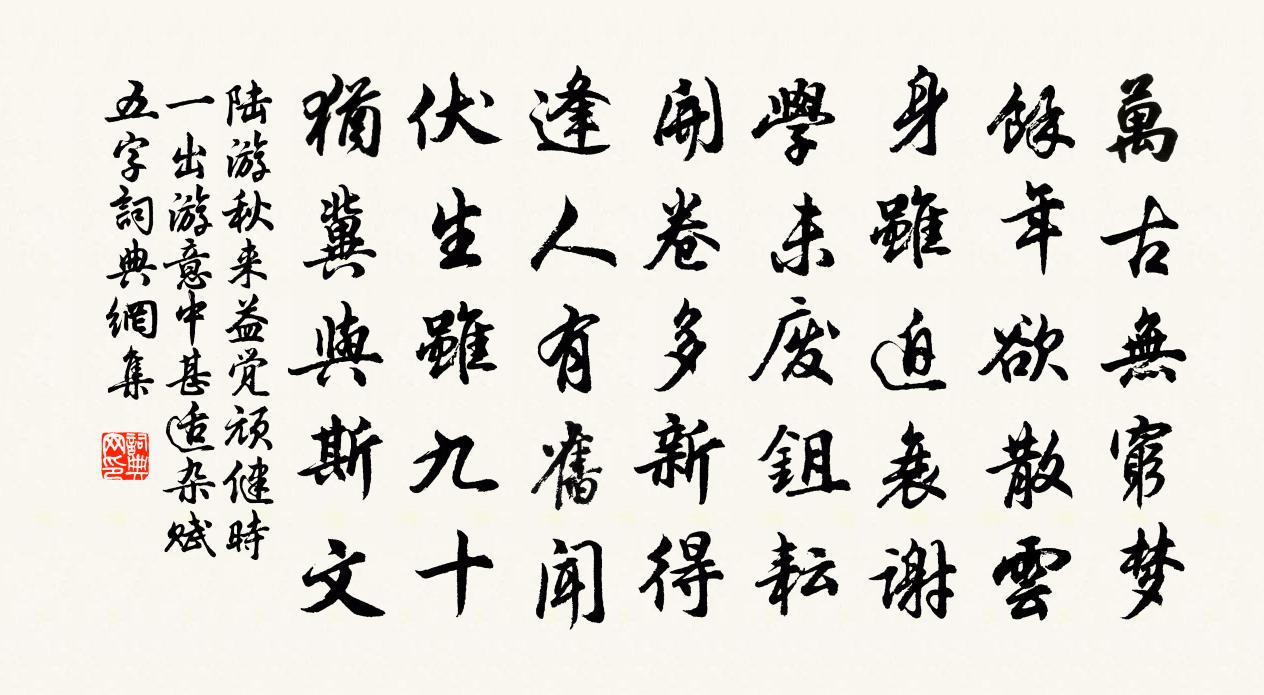 萬古無窮梦
餘年欲散雲
身雖迫衰谢
學未废鉏耘
開卷多新得
逢人有舊聞
伏生雖九十
猶冀與斯文
陆游秋来益觉顽健時
一出游意中甚适杂赋
五字詞典網集
詞典
网印